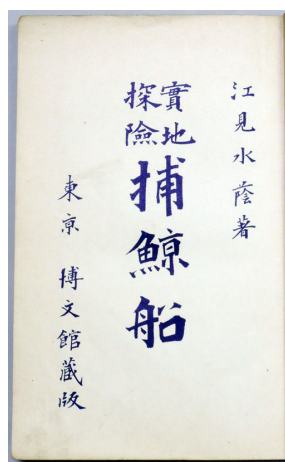 江見水蔭著
實地
探險
捕鯨船
東京 博文館藏版